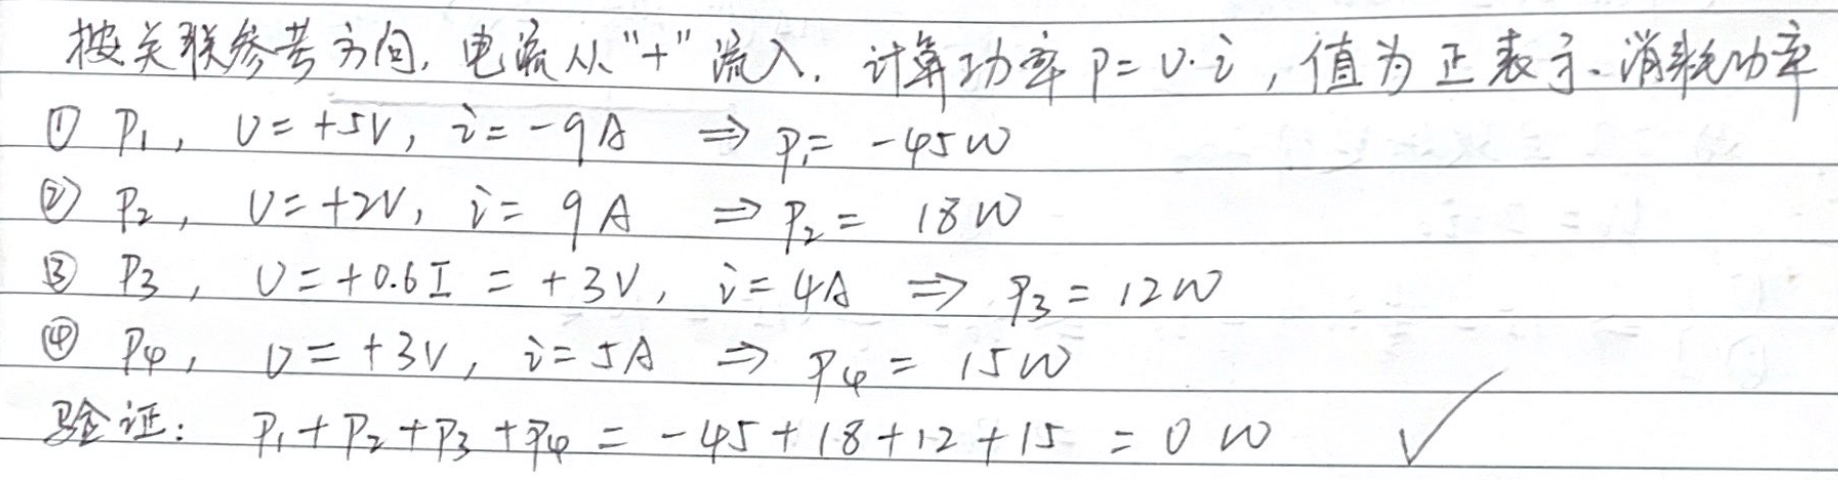 按关联参考方向, 电流从"+"流入. 计算功率 P=U·i, 值为正表示消耗功率
① P₁, U=+5V, i=-9A ⇒ P₁= -45W
② P₂, U=+2V, i= 9A ⇒ P₂= 18W
③ P₃, U=+0.6I = +3V, i=4A ⇒ P₃=12W
④ P₄, U=+3V, i=5A ⇒ P₄=15W
验证: P₁+P₂+P₃+P₄ = -45+18+12+15 = 0 W ✓